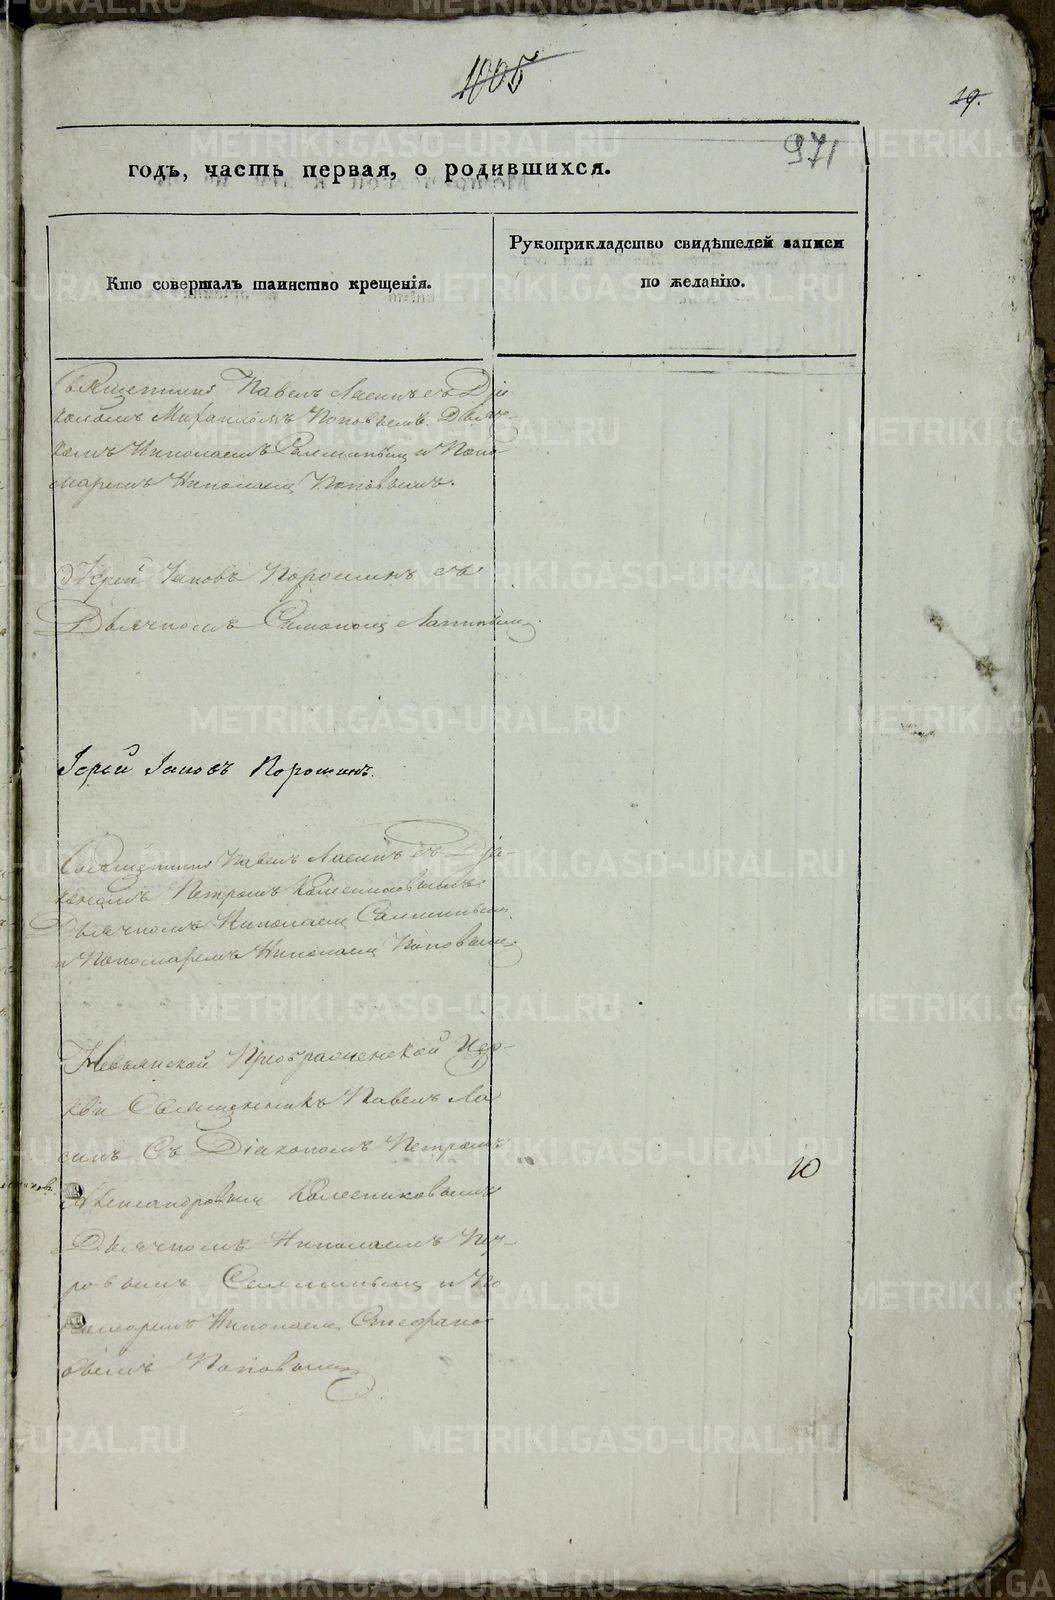 1005
19.
971
годъ, часть первая, о родившихся.
Кто совершалъ таинство крещенія.
Рукоприкладство свидѣтелей записи
по желанію.
Священникъ Павелъ Ласинъ съ Дія
кономъ Михаиломъ Поповымъ. Дьяч-
комъ Николаемъ и Поно-
маремъ Николаемъ Поповымъ.
Іерей Іаковъ Порошинъ съ
Дьячкомъ Симономъ
Іерей Іаковъ Порошинъ.
Священникъ Павелъ Ласинъ съ Діа-
кономъ Петромъ Колесниковымъ
Дьячкомъ Николаемъ
и Пономаремъ Николаемъ Поповымъ.
Невьянской Преображенской Цер-
кви Священникъ Павелъ Ла
синъ Съ Діакономъ Петромъ
Александровымъ Колесниковымъ
Дьячкомъ Николаемъ
и По
номаремъ Николаемъ Стефано
вымъ Поповымъ
10
METRIKI.GASO-URAL.RU